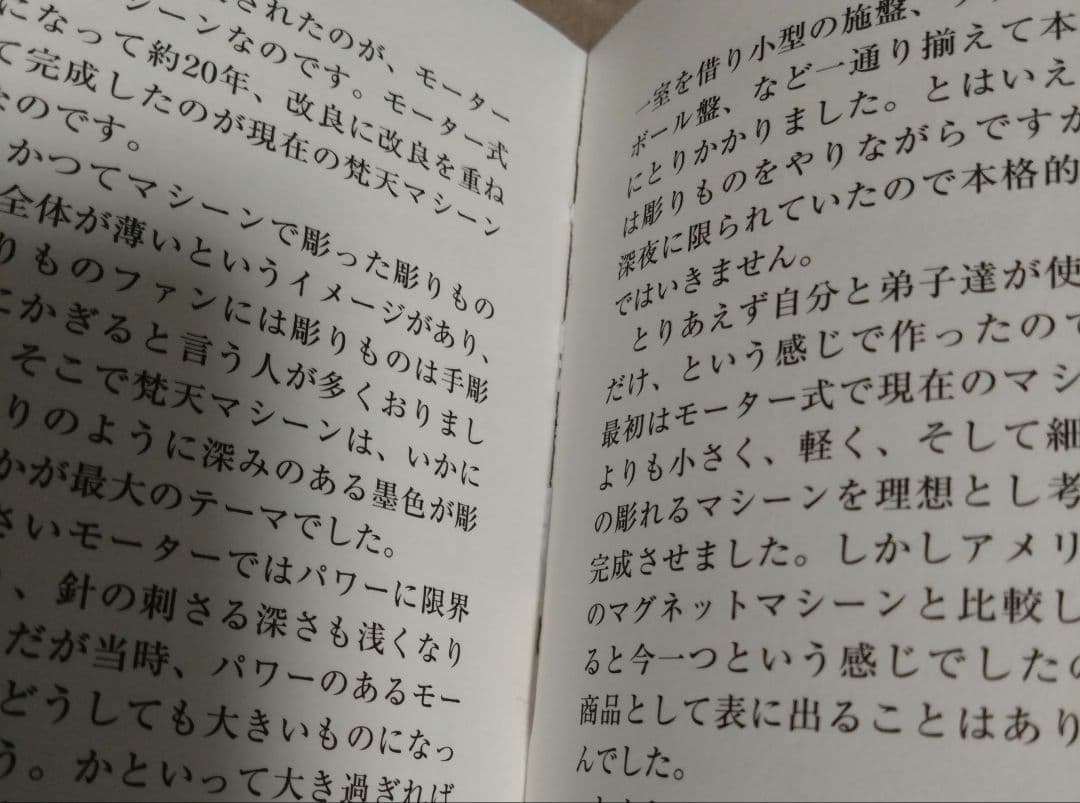 されたのが、モーター
シーンなのです。モーター式
になって約20年、改良に改良を重ね
て完成したのが現在の梵天マシーン
なのです。
かつてマシーンで彫った彫りもの
全体が薄いというイメージがあり、
りものファンには彫りものは手彫
にかぎると言う人が多くおりまし
そこで梵天マシーンは、いかに
りのように深みのある墨色が彫
かが最大のテーマでした。
さいモーターではパワーに限界
、針の刺さる深さも浅くなり
だが当時、パワーのあるモー
どうしても大きいものになっ
う。かといって大き過ぎれば
一室を借り小型の施盤、
ボール盤、など一通り揃えて本
にとりかかりました。とはいえ
は彫りものをやりながらですが
深夜に限られていたので本格的
ではいきません。
とりあえず自分と弟子達が使
だけ、という感じで作ったので
最初はモーター式で現在のマシ
よりも小さく、軽く、そして細
の彫れるマシーンを理想とし考
完成させました。しかしアメリ
のマグネットマシーンと比較し
ると今一つという感じでしたの
商品として表に出ることはあり
んでした。